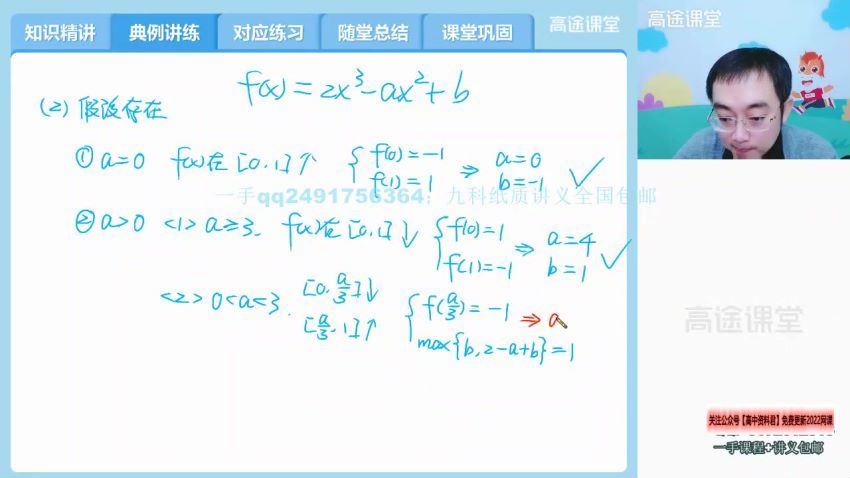 知识精讲 典例讲练 对应练习 随堂总结 课堂巩固 高途课堂
高途课堂
f(x)=2x³-ax²+b
(2) 假设存在
① a=0 f(x)在[0,1]↑ { f(0)=-1 f(1)=1 ⇒ a=0 b=-1 ✓
一手qq2491756364；九科纸质讲义全国包邮
② a>0 <1> a≥3. f(x)在[0,1]↓ { f(0)=1 f(1)=-1 ⇒ a=4 b=1 ✓
<2> 0<a<3. [0,a/3]↓ [a/3,1]↑ { f(a/3)=-1 max{b,2-a+b}=1 ⇒ a
高途课堂
关注公众号【高中资料君】免费更新2022网课
一手课程+讲义包邮